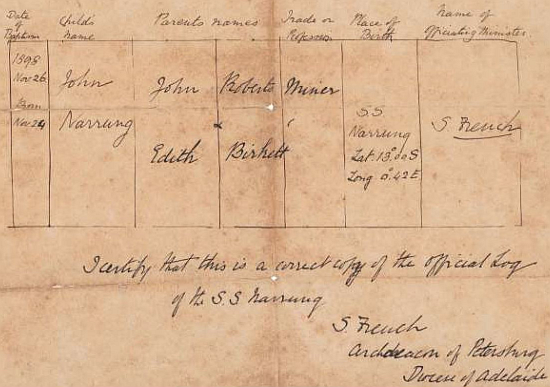 Date of Baptism Childs name Parents names Trade or Profession Place of Birth Name of Officiating Minister
1898
Nov 26 John John Roberts Miner
Born S S
Nov 24 Narrung & Narrung S French
Edith Birkett Lat. 13°.00 S
Long 0°.42 E
I certify that this is a correct copy of the Official Log
of the S.S Narrung
S. French
Archdeacon of Petersburg
Diocese of Adelaide